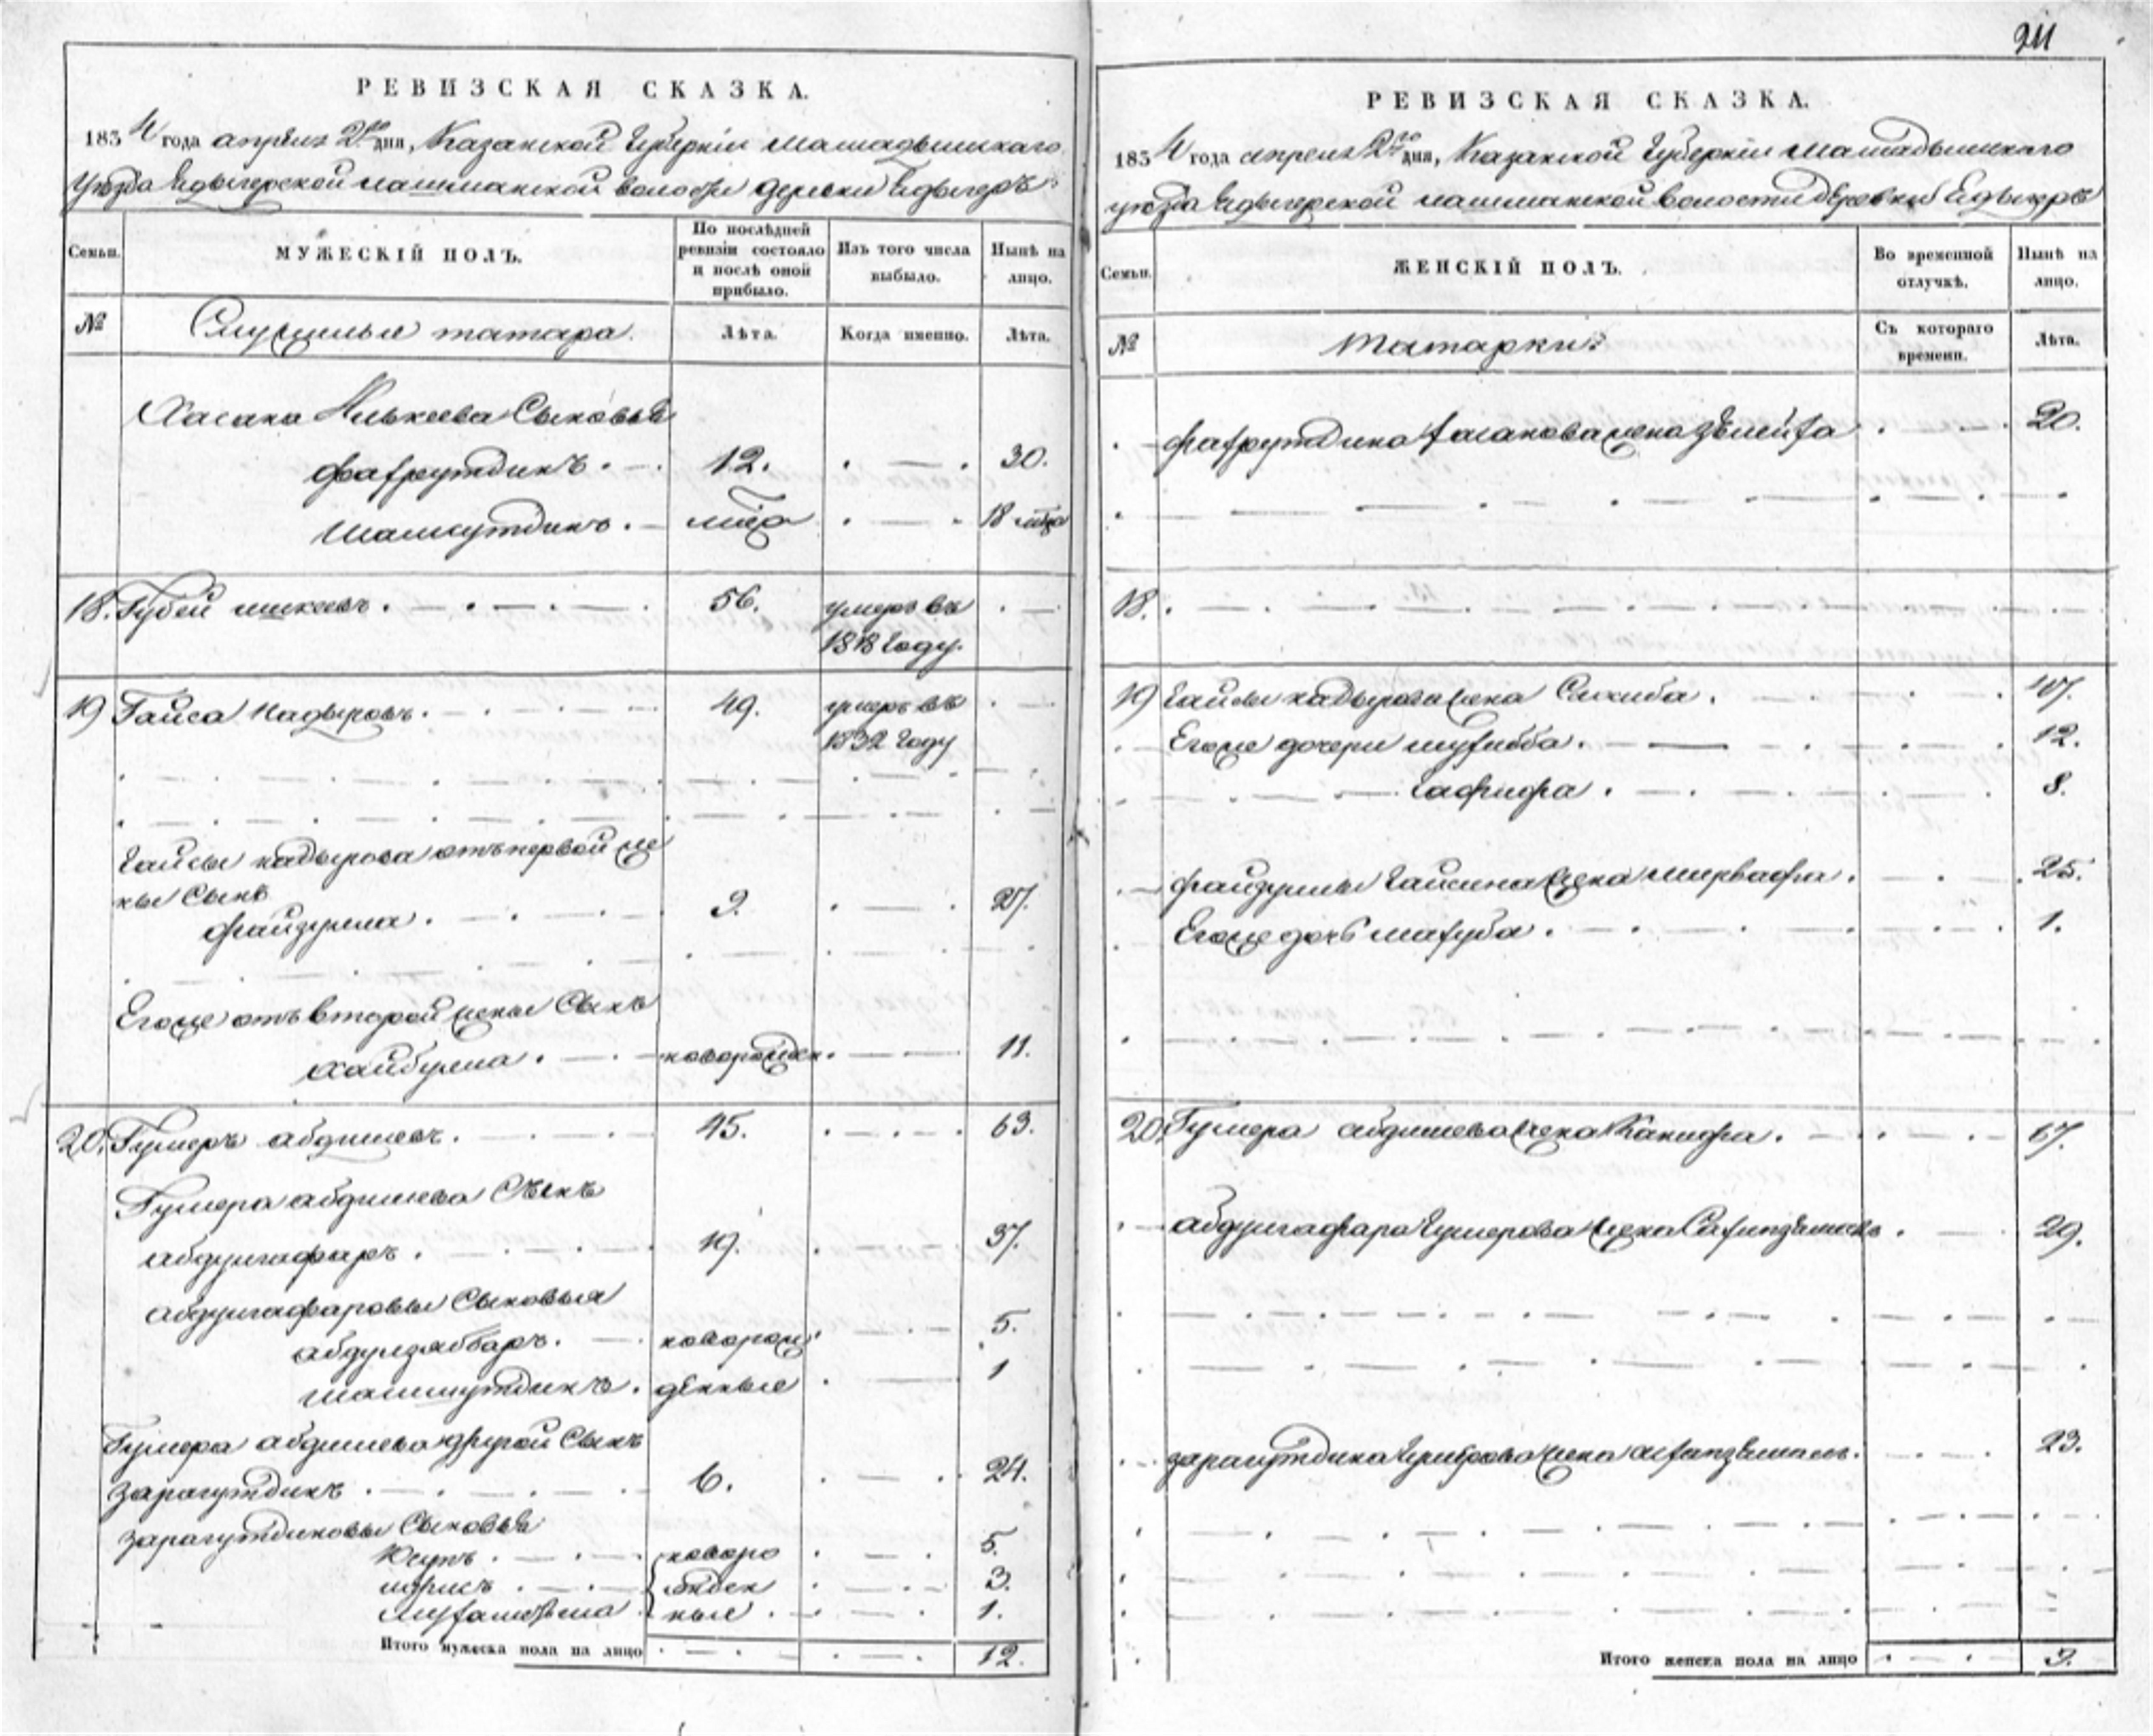 211
РЕВИЗСКАЯ СКАЗКА.
1834 года апреля 2го дня, Казанской Губерніи Мамадышскаго
Уѣзда Едыгерской волости деревни Едыгеръ
Семьи.
МУЖЕСКІЙ ПОЛЪ.
По послѣдней ревизіи состояло и послѣ оной прибыло.
Изъ того числа выбыло.
Нынѣ на лицо.
№
татара.
Лѣта.
Когда именно.
Лѣта.
Хасана Сыновья
Фахрутдинъ. 12. 30.
Шамсутдинъ. 18
18. Губей 56. умеръ въ
1818 Году.
19 Гайса Кадыровъ. 49. умеръ въ
1832 Году
Гайсы Кадырова отъ первой же
ны Сынъ
Файзулла. 9. 27.
Егоже отъ второй жены Сынъ
Хайбулла. новорожден. 11.
20. Гумеръ Абдишевъ. 45. 63.
Гумера Абдишева Сынъ
Абдулгафаръ. 19. 37.
Абдулгафаровы Сыновья
Абдулзяббаръ. новорож 5.
Шамсутдинъ. денные 1
Гумера Абдишева другой Сынъ
Зарагутдинъ. 6. 24.
Зарагутдиновы Сыновья
Юсупъ. новоро 5.
Идрисъ. жден 3.
ные. 1.
Итого мужеска пола на лицо 12.
РЕВИЗСКАЯ СКАЗКА.
1834 года апреля 2го дня, Казанской Губерніи Мамадышскаго
уѣзда Едыгерской волости деревни Едыгеръ
Семьи.
ЖЕНСКІЙ ПОЛЪ.
Во временной отлучкѣ.
Нынѣ на лицо.
№
Татарки
Съ котораго времени.
Лѣта.
Фахрутдина Хасанова жена 20.
18.
19 Гайсы Кадырова жена Сахиба. 47.
Егоже дочери 12.
Гафифа. 8.
Файзуллы Гайсина жена 25.
Егоже дочь Махуба. 1.
20. Гумера Абдишева жена Ханифа. 67.
Абдулгафара Гумерова жена 29.
Зарагутдина Гумерова жена 23.
Итого женска пола на лицо 9.